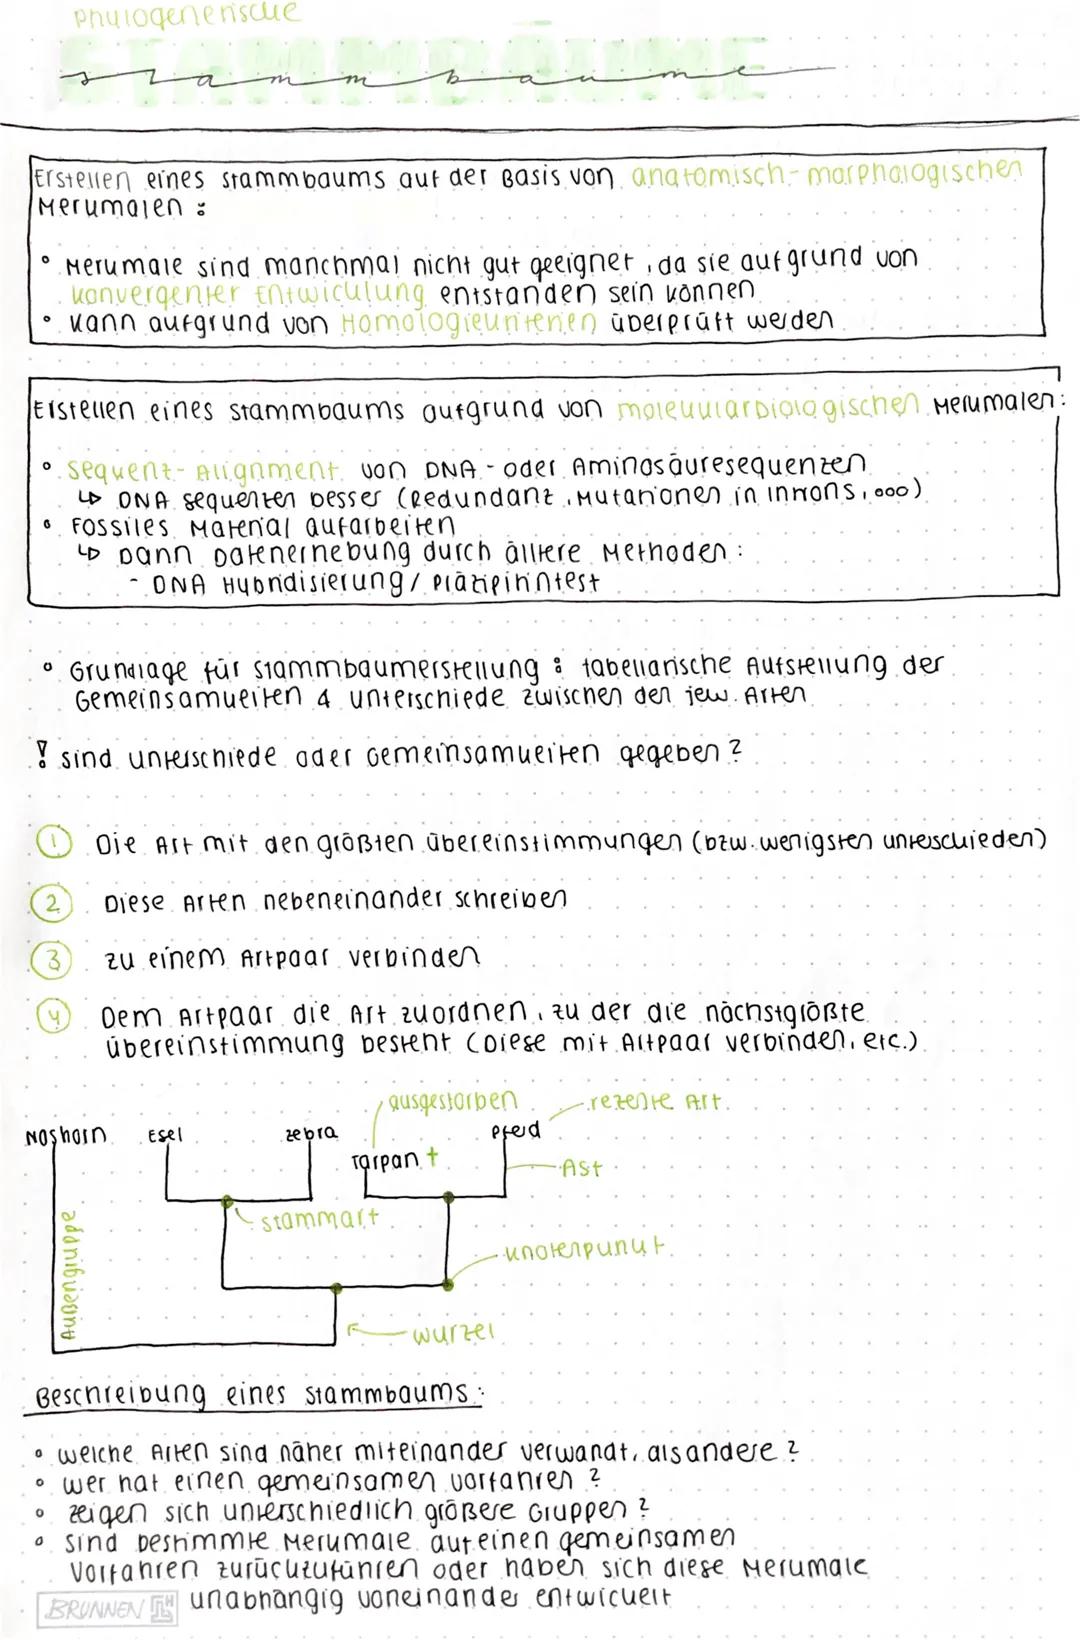 phylogenetische
STAMMBÄUME
stammbäume
Erstellen eines Stammbaums auf der Basis von anatomisch-morphologischen
Merkmalen:
° Merkmale sind manchmal nicht gut geeignet, da sie aufgrund von
konvergenter Entwicklung entstanden sein können
° kann aufgrund von Homologiekriterien überprüft werden
Erstellen eines Stammbaums aufgrund von molekularbiologischen Merkmalen:
° Sequenz-Alignment von DNA- oder Aminosäuresequenzen
↳ DNA Sequenzen besser (Redundanz, Mutationen in Introns, ...)
° Fossiles Material aufarbeiten
↳ Dann Datenerhebung durch älltere Methoden:
- DNA Hybridisierung/Präzipitintest
° Grundlage für Stammbaumerstellung: tabellarische Aufstellung der
Gemeinsamkeiten & Unterschiede zwischen den jew. Arten
! sind Unterschiede oder Gemeinsamkeiten gegeben?
1 Die Art mit den größten Übereinstimmungen (bzw. wenigsten Unterschieden)
2 Diese Arten nebeneinander schreiben
3 zu einem Artpaar verbinden
4 Dem Artpaar die Art zuordnen, zu der die nächstgrößte
Übereinstimmung besteht (Diese mit Artpaar verbinden, etc.)
ausgestorben rezente Art
Nashorn Esel Zebra Pferd
Tarpan †
Ast
Stammart
Außengruppe
Knotenpunkt
Wurzel
Beschreibung eines Stammbaums:
° welche Arten sind näher miteinander verwandt, als andere?
° wer hat einen gemeinsamen Vorfahren?
° zeigen sich unterschiedlich größere Gruppen?
° sind bestimmte Merkmale auf einen gemeinsamen
Vorfahren zurückzuführen oder haben sich diese Merkmale
unabhängig voneinander entwickelt
BRUNNEN